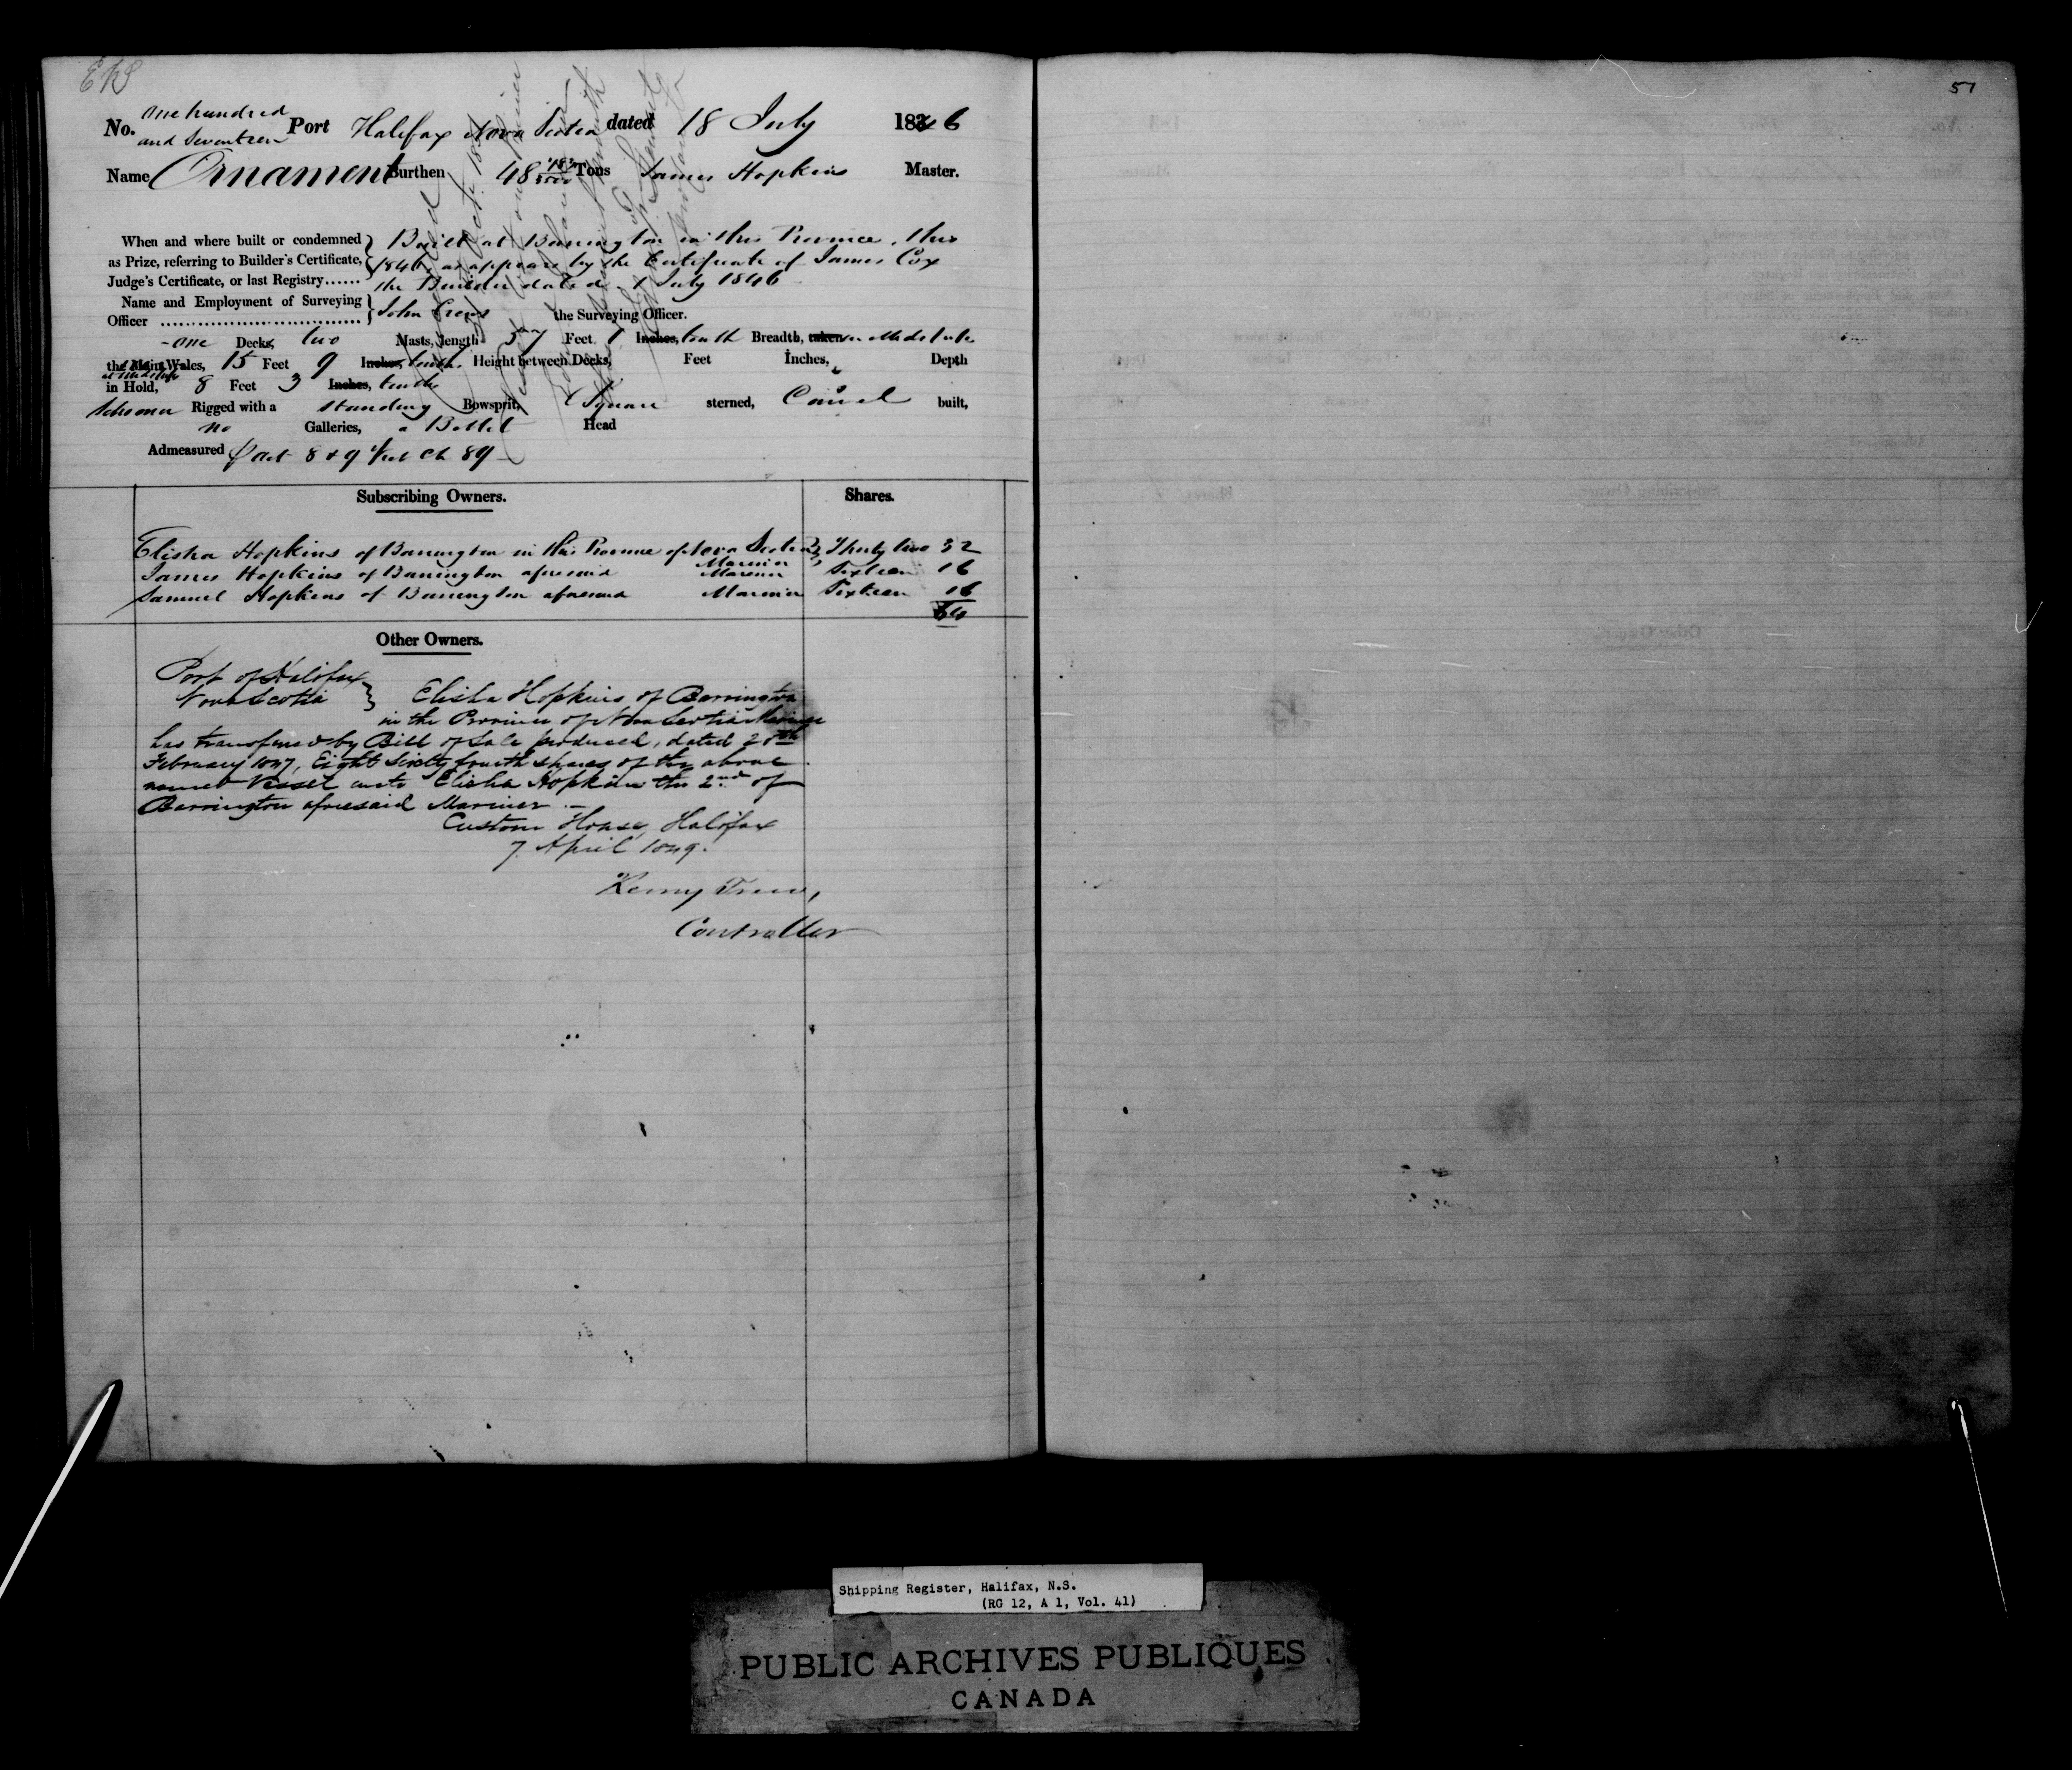 No. One hundred and Seventeen Port Halifax Nova Scotia dated 18 July 1846
Name Ornament Burthen 48 Tons James Hopkins Master.
When and where built or condemned } Built at Barrington in this Province, this
as Prize, referring to Builder's Certificate, 1846, as appears by the Certificate of James Cox
Judge's Certificate, or last Registry...... the Builder dated 1 July 1846
Name and Employment of Surveying } John Crews
Officer .................................. the Surveying Officer.
one Decks, two Masts, length 57 Feet 1 Inches, tenth Breadth, taken in Midships
the Main Wales, 15 Feet 9 Inches, tenths Height between Decks, Feet Inches, Depth
at Midships
in Hold, 8 Feet 3 Inches, tenths
Schooner Rigged with a standing Bowsprit, Square sterned, Carvel built,
no Galleries, a Billet Head
Admeasured Act 8 & 9 Vict Ch 89
Subscribing Owners. Shares.
Elisha Hopkins of Barrington in this Province of Nova Scotia Mariner } Thirty two 32
James Hopkins of Barrington aforesaid Mariner Sixteen 16
Samuel Hopkins of Barrington aforesaid Mariner Sixteen 16
64
Other Owners.
Port of Halifax
Nova Scotia } Elisha Hopkins of Barrington
in the Province of Nova Scotia Mariner
has transferred by Bill of Sale produced, dated
February 1847, Eight Sixty fourth shares of the above
named Vessel unto Elisha Hopkins the 2nd of
Barrington aforesaid Mariner.
Custom House, Halifax
7 April 1849.
Controller
51
Shipping Register, Halifax, N.S.
(RG 12, A 1, Vol. 41)
PUBLIC ARCHIVES PUBLIQUES
CANADA